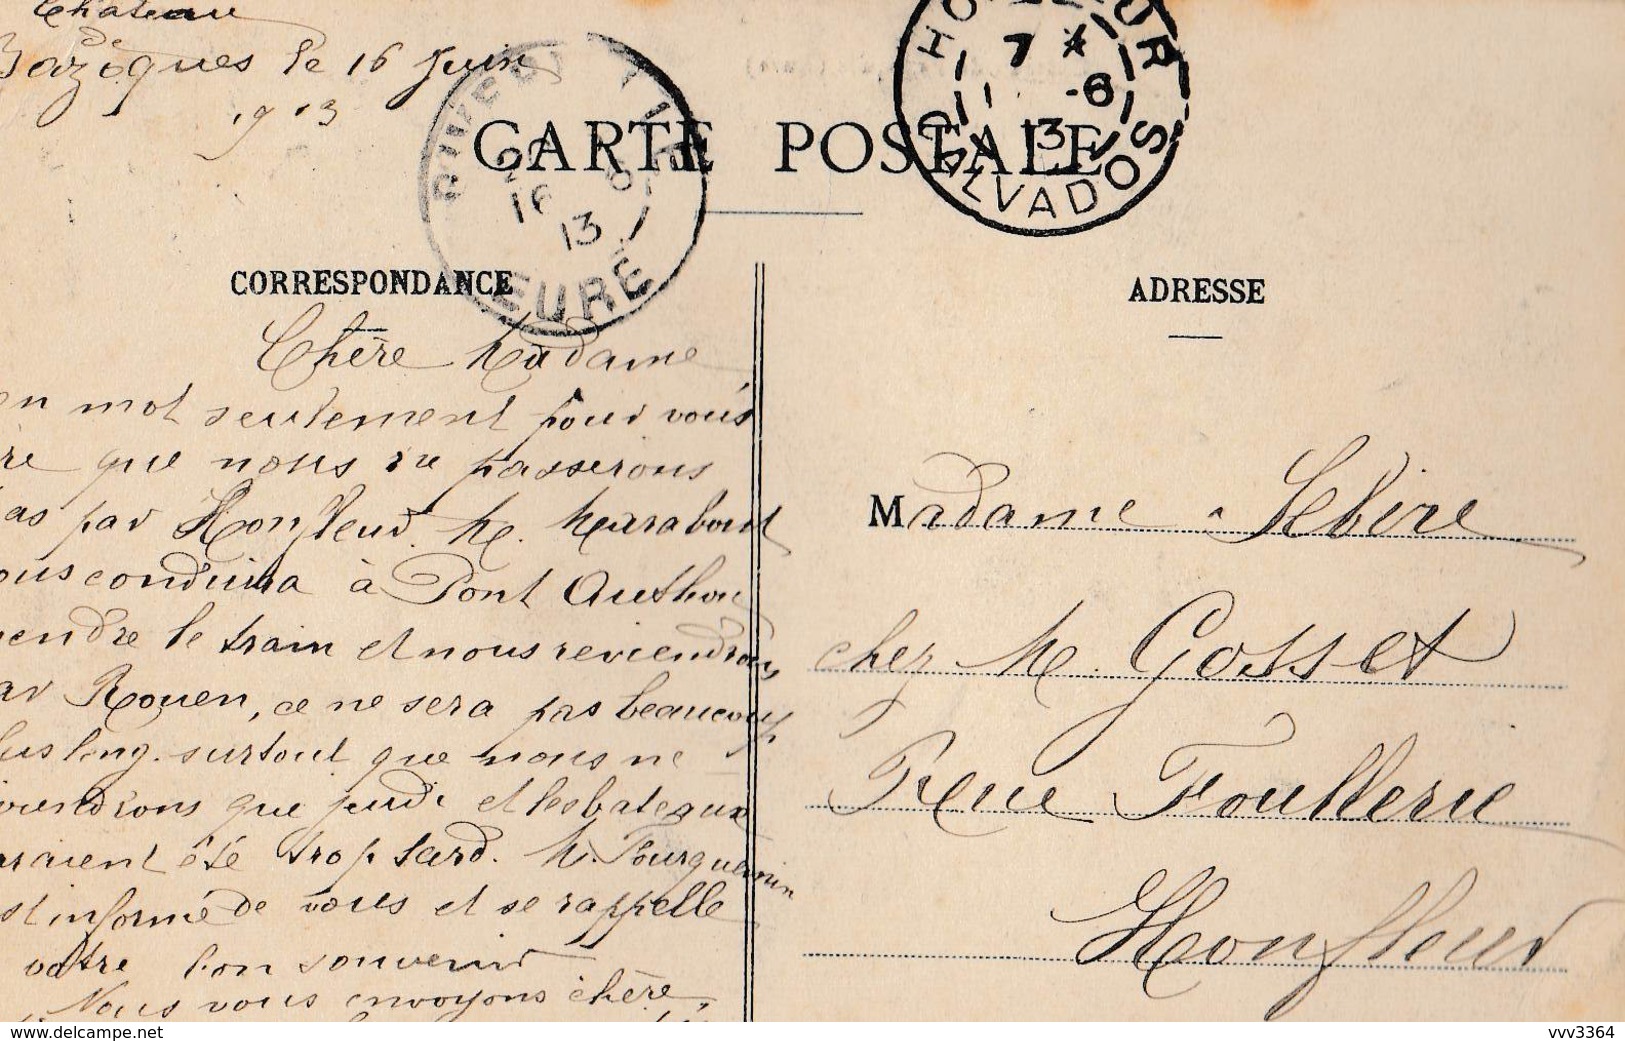 Château
de
Bazoques le 16 Juin
1913
CARTE POSTALE
HONFLEUR
7 * -6
13
CALVADOS
16 6
13
EURE
CORRESPONDANCE
ADRESSE
Chère Madame
un mot seulement pour vous
re que nous ne passerons
as par Honfleur. M. Marabout
ous conduira à Pont Authou
rendre le train et nous reviendrons
ar Rouen, ce ne sera pas beaucoup
lus long. surtout que nous ne
viendrons que jeudi et les bateaux
raient été trop tard. M. Fourquemin
st informé de vous et se rappelle
votre bon souvenir
Nous vous envoyons chère
Madame Sebire
chez M. Gosset
Rue Foullerie
Honfleur
www.delcampe.net
vvv3364